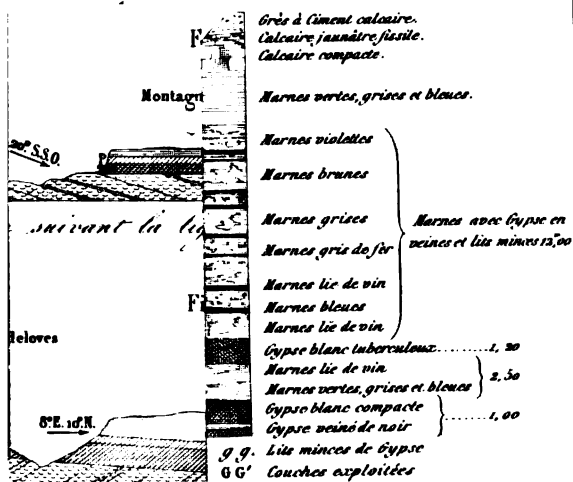 Grès à Ciment calcaire.
Calcaire jaunâtre fissile.
Calcaire compacte.
Montag
Marnes vertes, grises et bleues.
20° S.S.O.
Marnes violettes
Marnes brunes
suivant la
Marnes grises
Marnes avec Gypse en
veines et lits minces 12,m00
Marnes gris de fer
Marnes lie de vin
Marnes bleues
Marnes lie de vin
Heloves
Gypse blanc tuberculeux.......... 1, 20
Marnes lie de vin
Marnes vertes, grises et bleues
2, 50
Gypse blanc compacte
Gypse veiné de noir
...... 1, 00
8° E. 10° N.
g g. Lits minces de Gypse
G G' Couches exploitées